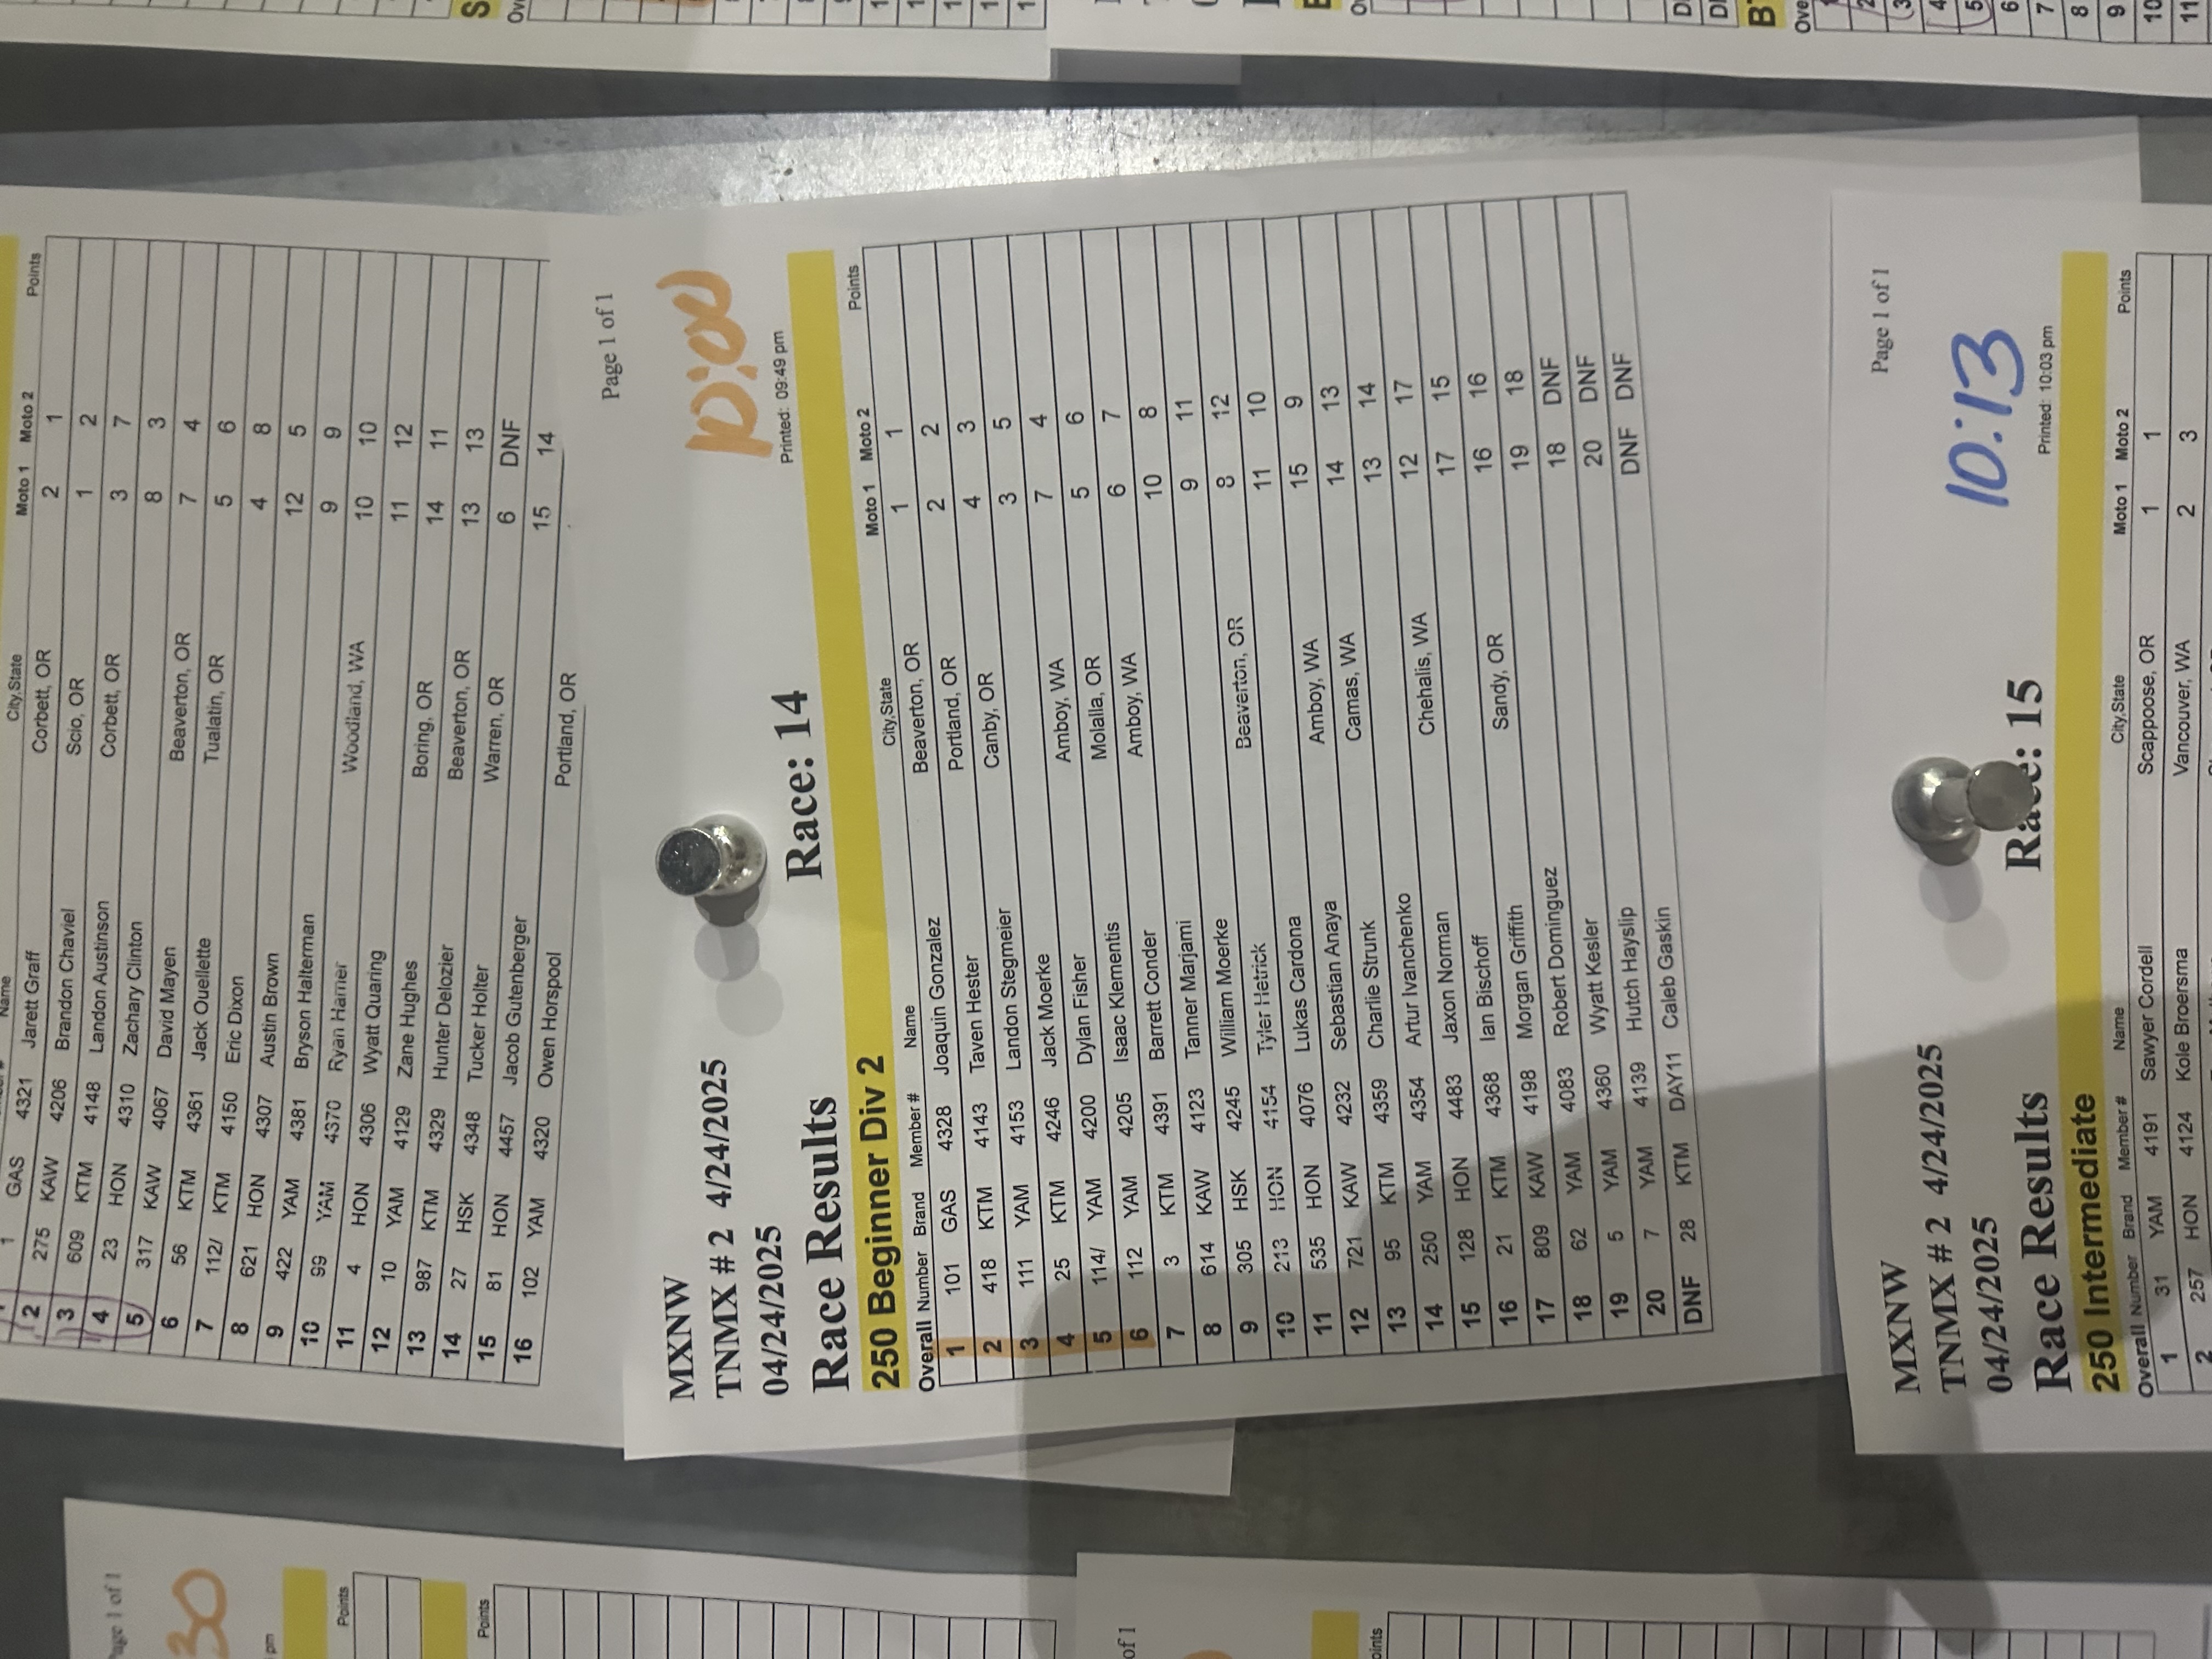 Name City,State Moto 1 Moto 2 Points
1 1 GAS 4321 Jarett Graff Corbett, OR 2 1
2 275 KAW 4206 Brandon Chaviel Scio, OR 1 2
3 609 KTM 4148 Landon Austinson Corbett, OR 3 7
4 23 HON 4310 Zachary Clinton 8 3
5 317 KAW 4067 David Mayen Beaverton, OR 7 4
6 56 KTM 4361 Jack Ouellette Tualatin, OR 5 6
7 112/ KTM 4150 Eric Dixon 4 8
8 621 HON 4307 Austin Brown 12 5
9 422 YAM 4381 Bryson Halterman 9 9
10 99 YAM 4370 Ryan Hamer Woodland, WA 10 10
11 4 HON 4306 Wyatt Quaring 11 12
12 10 YAM 4129 Zane Hughes Boring, OR 14 11
13 987 KTM 4329 Hunter Delozier Beaverton, OR 13 13
14 27 HSK 4348 Tucker Holter Warren, OR 6 DNF
15 81 HON 4457 Jacob Gutenberger 15 14
16 102 YAM 4320 Owen Horspool Portland, OR
Page 1 of 1
MXNW
TNMX # 2 4/24/2025
10:00
04/24/2025
Printed: 09:49 pm
Race Results Race: 14
250 Beginner Div 2
Overall Number Brand Member# Name City,State Moto 1 Moto 2 Points
1 101 GAS 4328 Joaquin Gonzalez Beaverton, OR 1 1
2 418 KTM 4143 Taven Hester Portland, OR 2 2
3 111 YAM 4153 Landon Stegmeier Canby, OR 4 3
4 25 KTM 4246 Jack Moerke 3 5
5 114/ YAM 4200 Dylan Fisher Amboy, WA 7 4
6 112 YAM 4205 Isaac Klementis Molalla, OR 5 6
7 3 KTM 4391 Barrett Conder Amboy, WA 6 7
8 614 KAW 4123 Tanner Marjami 10 8
9 305 HSK 4245 William Moerke 9 11
10 213 HON 4154 Tyler Hetrick Beaverton, OR 8 12
11 535 HON 4076 Lukas Cardona 11 10
12 721 KAW 4232 Sebastian Anaya Amboy, WA 15 9
13 95 KTM 4359 Charlie Strunk Camas, WA 14 13
14 250 YAM 4354 Artur Ivanchenko 13 14
15 128 HON 4483 Jaxon Norman Chehalis, WA 12 17
16 21 KTM 4368 Ian Bischoff 17 15
17 809 KAW 4198 Morgan Griffith Sandy, OR 16 16
18 62 YAM 4083 Robert Dominguez 19 18
19 5 YAM 4360 Wyatt Kesler 18 DNF
20 7 YAM 4139 Hutch Hayslip 20 DNF
DNF 28 KTM DAY11 Caleb Gaskin DNF DNF
Page 1 of 1
MXNW
TNMX # 2 4/24/2025
10:13
04/24/2025
Printed: 10:03 pm
Race Results Race: 15
250 Intermediate
Overall Number Brand Member# Name City,State Moto 1 Moto 2 Points
1 31 YAM 4191 Sawyer Cordell Scappoose, OR 1 1
2 257 HON 4124 Kole Broersma Vancouver, WA 2 3
Page 1 of 1
30
pm
Points
Points
of 1